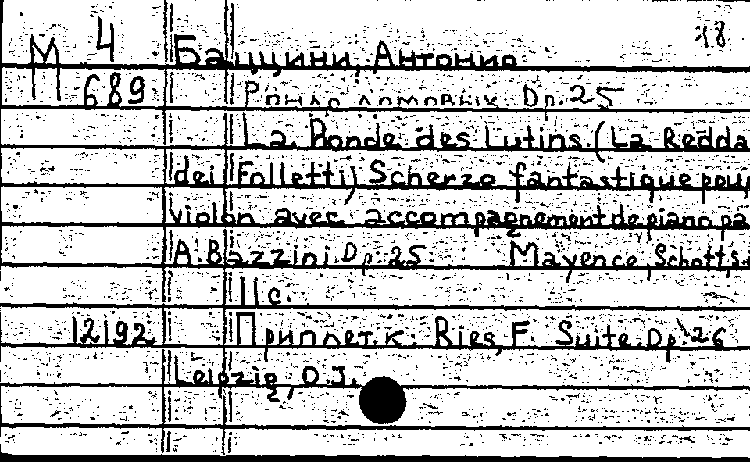 18
М 4 Баццини, Антонио
689 Рондо домовых. Op. 25
La Ronde des Lutins. (La Redda
dei Folletti) Scherzo fantastique pour
violon avec accompagnement de piano pa
A. Bazzini. Op. 25. Mayence, Schott's
11 с.
12192 Приплет. к: Ries, F. Suite. Op. 26
Leipzig, O.J.